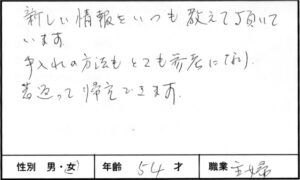 新しい情報をいつも教えて頂いて
います。
手入れの方法もとても参考になり、
若返って帰宅できます。
性別 男・女 年齢 54 才 職業 主婦